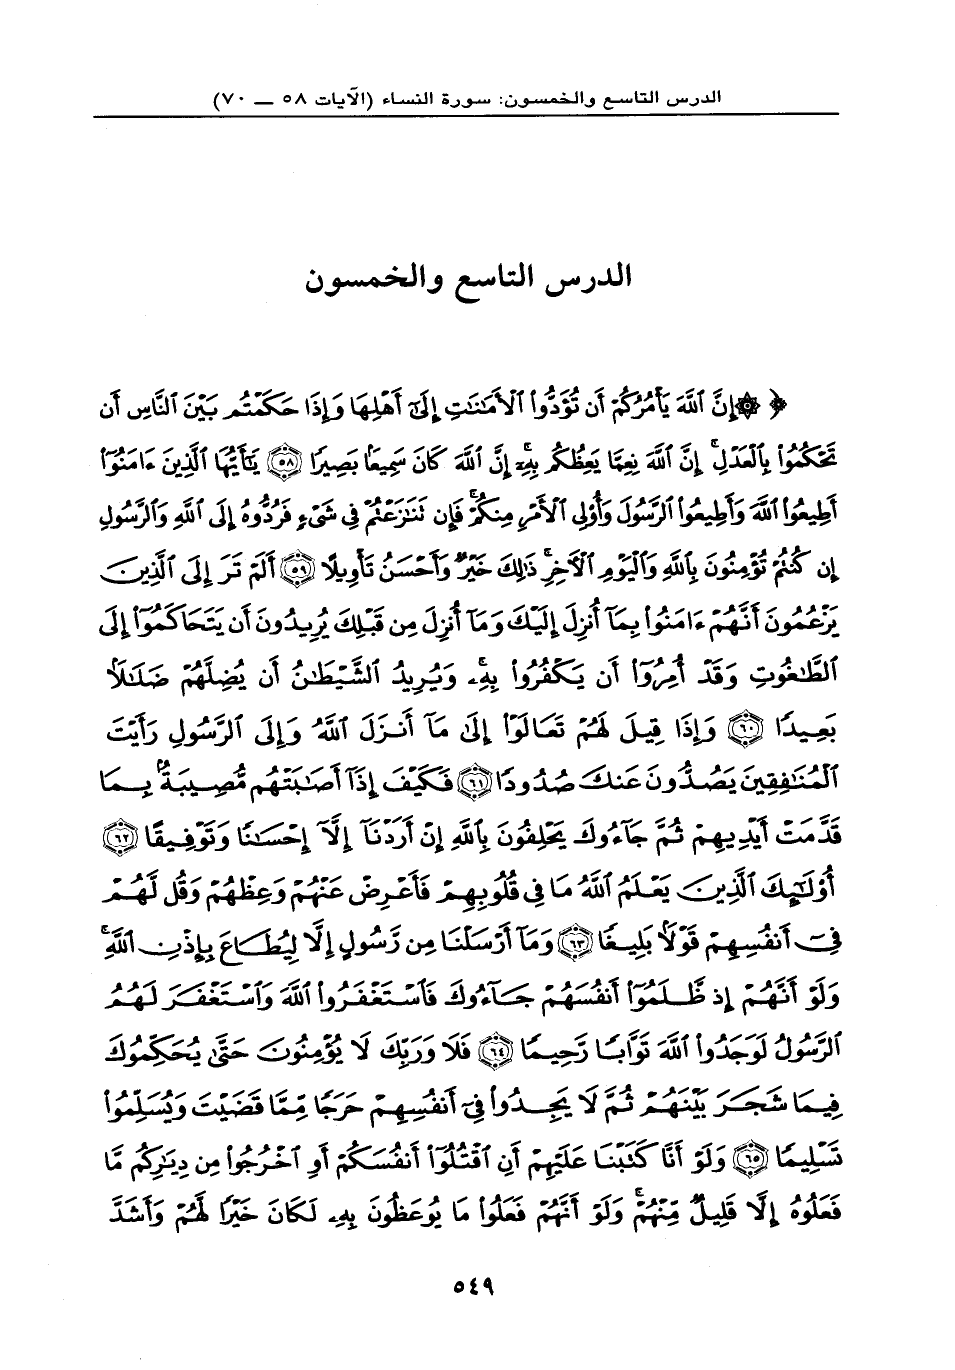 الدرس التاسع والخمسون: سورة النساء (الآيات ٥٨ — ٧٠)
الدرس التاسع والخمسون
﴿ ۞ إِنَّ ٱللَّهَ يَأْمُرُكُمْ أَن تُؤَدُّوا۟ ٱلْأَمَـٰنَـٰتِ إِلَىٰٓ أَهْلِهَا وَإِذَا حَكَمْتُم بَيْنَ ٱلنَّاسِ أَن
تَحْكُمُوا۟ بِٱلْعَدْلِ ۚ إِنَّ ٱللَّهَ نِعِمَّا يَعِظُكُم بِهِۦٓ ۗ إِنَّ ٱللَّهَ كَانَ سَمِيعًۢا بَصِيرًا ﴿٥٨﴾ يَـٰٓأَيُّهَا ٱلَّذِينَ ءَامَنُوٓا۟
أَطِيعُوا۟ ٱللَّهَ وَأَطِيعُوا۟ ٱلرَّسُولَ وَأُو۟لِى ٱلْأَمْرِ مِنكُمْ ۖ فَإِن تَنَـٰزَعْتُمْ فِى شَىْءٍ فَرُدُّوهُ إِلَى ٱللَّهِ وَٱلرَّسُولِ
إِن كُنتُمْ تُؤْمِنُونَ بِٱللَّهِ وَٱلْيَوْمِ ٱلْـَٔاخِرِ ۚ ذَٰلِكَ خَيْرٌ وَأَحْسَنُ تَأْوِيلًا ﴿٥٩﴾ أَلَمْ تَرَ إِلَى ٱلَّذِينَ
يَزْعُمُونَ أَنَّهُمْ ءَامَنُوا۟ بِمَآ أُنزِلَ إِلَيْكَ وَمَآ أُنزِلَ مِن قَبْلِكَ يُرِيدُونَ أَن يَتَحَاكَمُوٓا۟ إِلَى
ٱلطَّـٰغُوتِ وَقَدْ أُمِرُوٓا۟ أَن يَكْفُرُوا۟ بِهِۦ ۖ وَيُرِيدُ ٱلشَّيْطَـٰنُ أَن يُضِلَّهُمْ ضَلَـٰلًۢا
بَعِيدًا ﴿٦٠﴾ وَإِذَا قِيلَ لَهُمْ تَعَالَوْا۟ إِلَىٰ مَآ أَنزَلَ ٱللَّهُ وَإِلَى ٱلرَّسُولِ رَأَيْتَ
ٱلْمُنَـٰفِقِينَ يَصُدُّونَ عَنكَ صُدُودًا ﴿٦١﴾ فَكَيْفَ إِذَآ أَصَـٰبَتْهُم مُّصِيبَةٌۢ بِمَا
قَدَّمَتْ أَيْدِيهِمْ ثُمَّ جَآءُوكَ يَحْلِفُونَ بِٱللَّهِ إِنْ أَرَدْنَآ إِلَّآ إِحْسَـٰنًا وَتَوْفِيقًا ﴿٦٢﴾
أُو۟لَـٰٓئِكَ ٱلَّذِينَ يَعْلَمُ ٱللَّهُ مَا فِى قُلُوبِهِمْ فَأَعْرِضْ عَنْهُمْ وَعِظْهُمْ وَقُل لَّهُمْ
فِىٓ أَنفُسِهِمْ قَوْلًۢا بَلِيغًا ﴿٦٣﴾ وَمَآ أَرْسَلْنَا مِن رَّسُولٍ إِلَّا لِيُطَاعَ بِإِذْنِ ٱللَّهِ ۚ
وَلَوْ أَنَّهُمْ إِذ ظَّلَمُوٓا۟ أَنفُسَهُمْ جَآءُوكَ فَٱسْتَغْفَرُوا۟ ٱللَّهَ وَٱسْتَغْفَرَ لَهُمُ
ٱلرَّسُولُ لَوَجَدُوا۟ ٱللَّهَ تَوَّابًا رَّحِيمًا ﴿٦٤﴾ فَلَا وَرَبِّكَ لَا يُؤْمِنُونَ حَتَّىٰ يُحَكِّمُوكَ
فِيمَا شَجَرَ بَيْنَهُمْ ثُمَّ لَا يَجِدُوا۟ فِىٓ أَنفُسِهِمْ حَرَجًا مِّمَّا قَضَيْتَ وَيُسَلِّمُوا۟
تَسْلِيمًا ﴿٦٥﴾ وَلَوْ أَنَّا كَتَبْنَا عَلَيْهِمْ أَنِ ٱقْتُلُوٓا۟ أَنفُسَكُمْ أَوِ ٱخْرُجُوا۟ مِن دِيَـٰرِكُم مَّا
فَعَلُوهُ إِلَّا قَلِيلٌ مِّنْهُمْ ۖ وَلَوْ أَنَّهُمْ فَعَلُوا۟ مَا يُوعَظُونَ بِهِۦ لَكَانَ خَيْرًا لَّهُمْ وَأَشَدَّ
٥٤٩